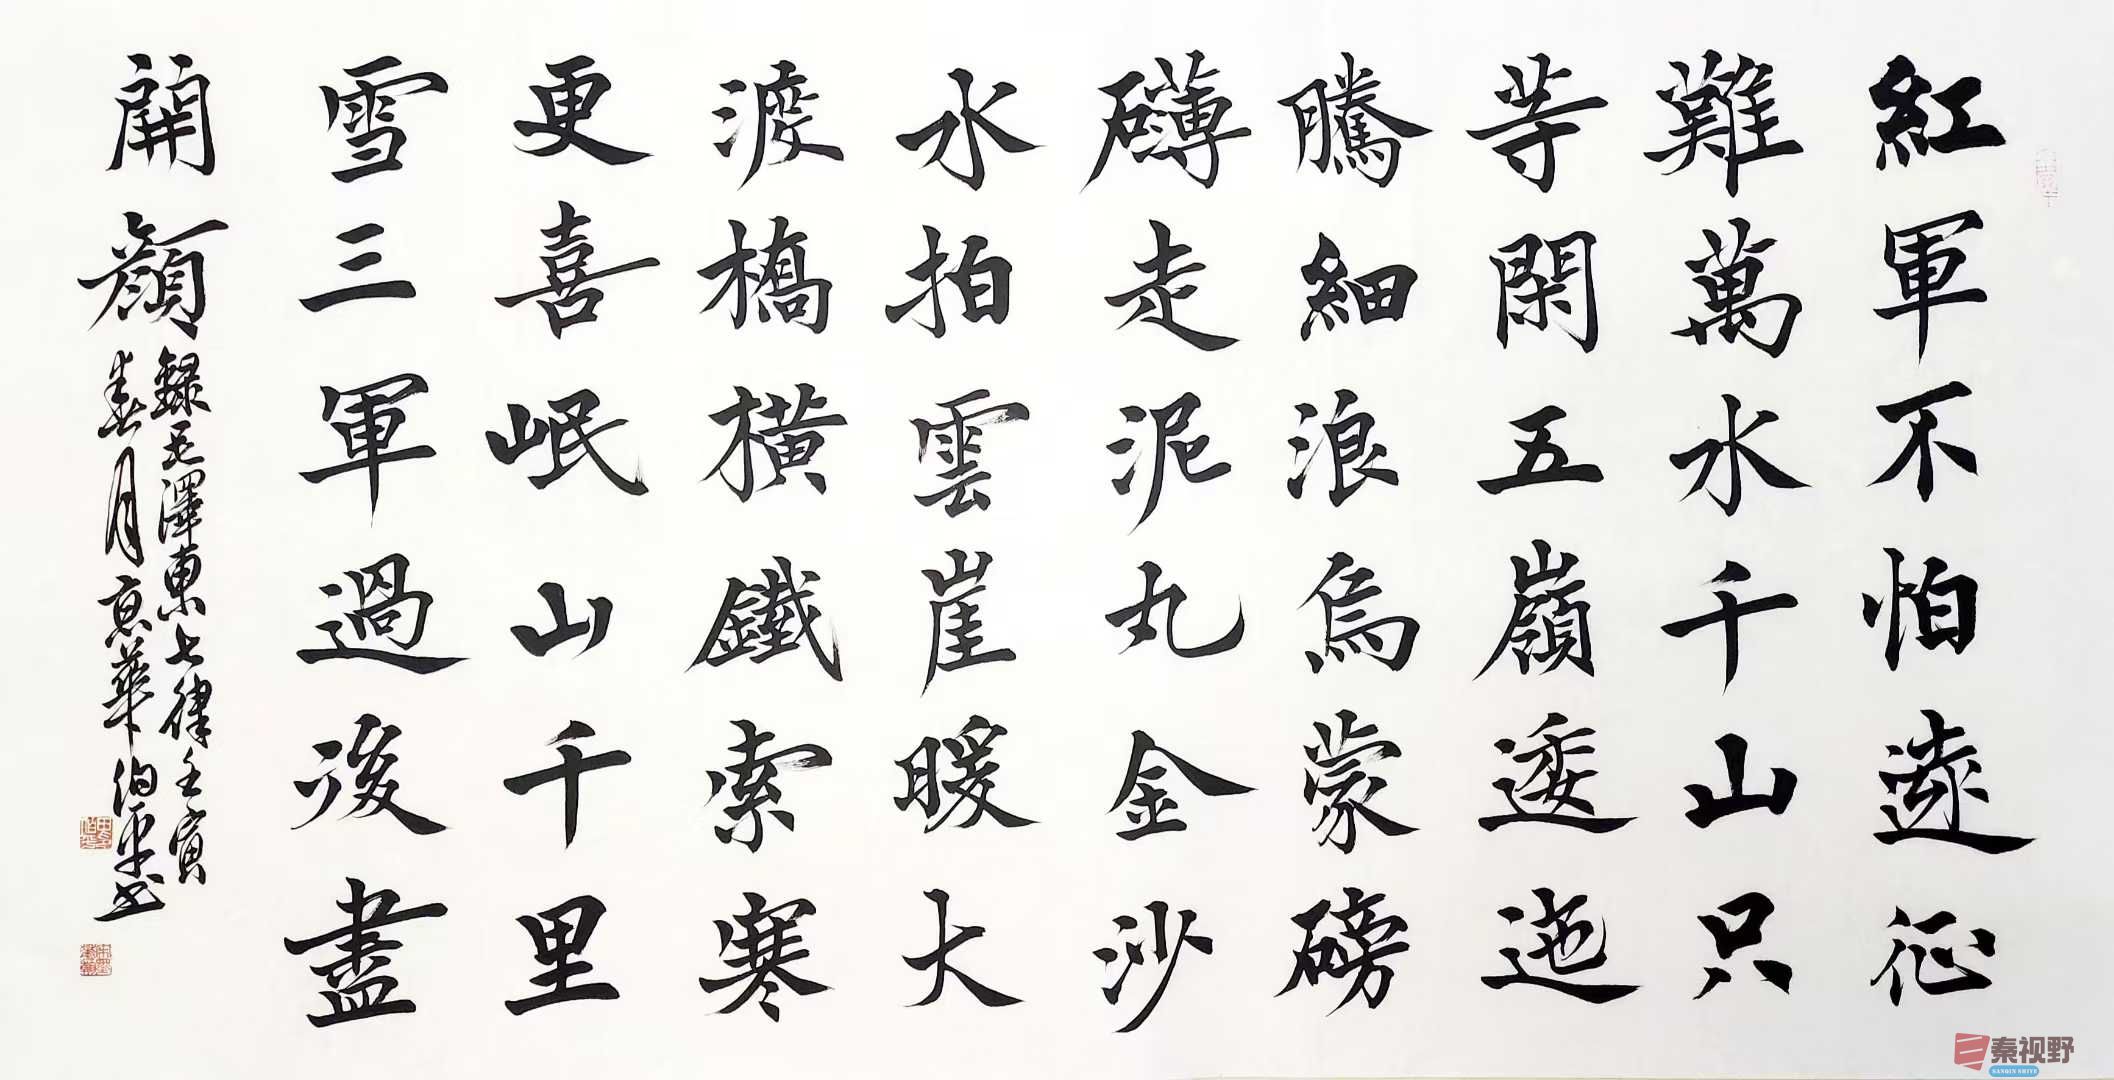 紅軍不怕遠征
難萬水千山只
等閑五嶺逶迤
騰細浪烏蒙磅
礴走泥丸金沙
水拍雲崖暖大
渡橋橫鐵索寒
更喜岷山千里
雪三軍過後盡
開顏
錄毛澤東七律壬寅
春月京華伯平书
秦视野
SANQIN SHIYE